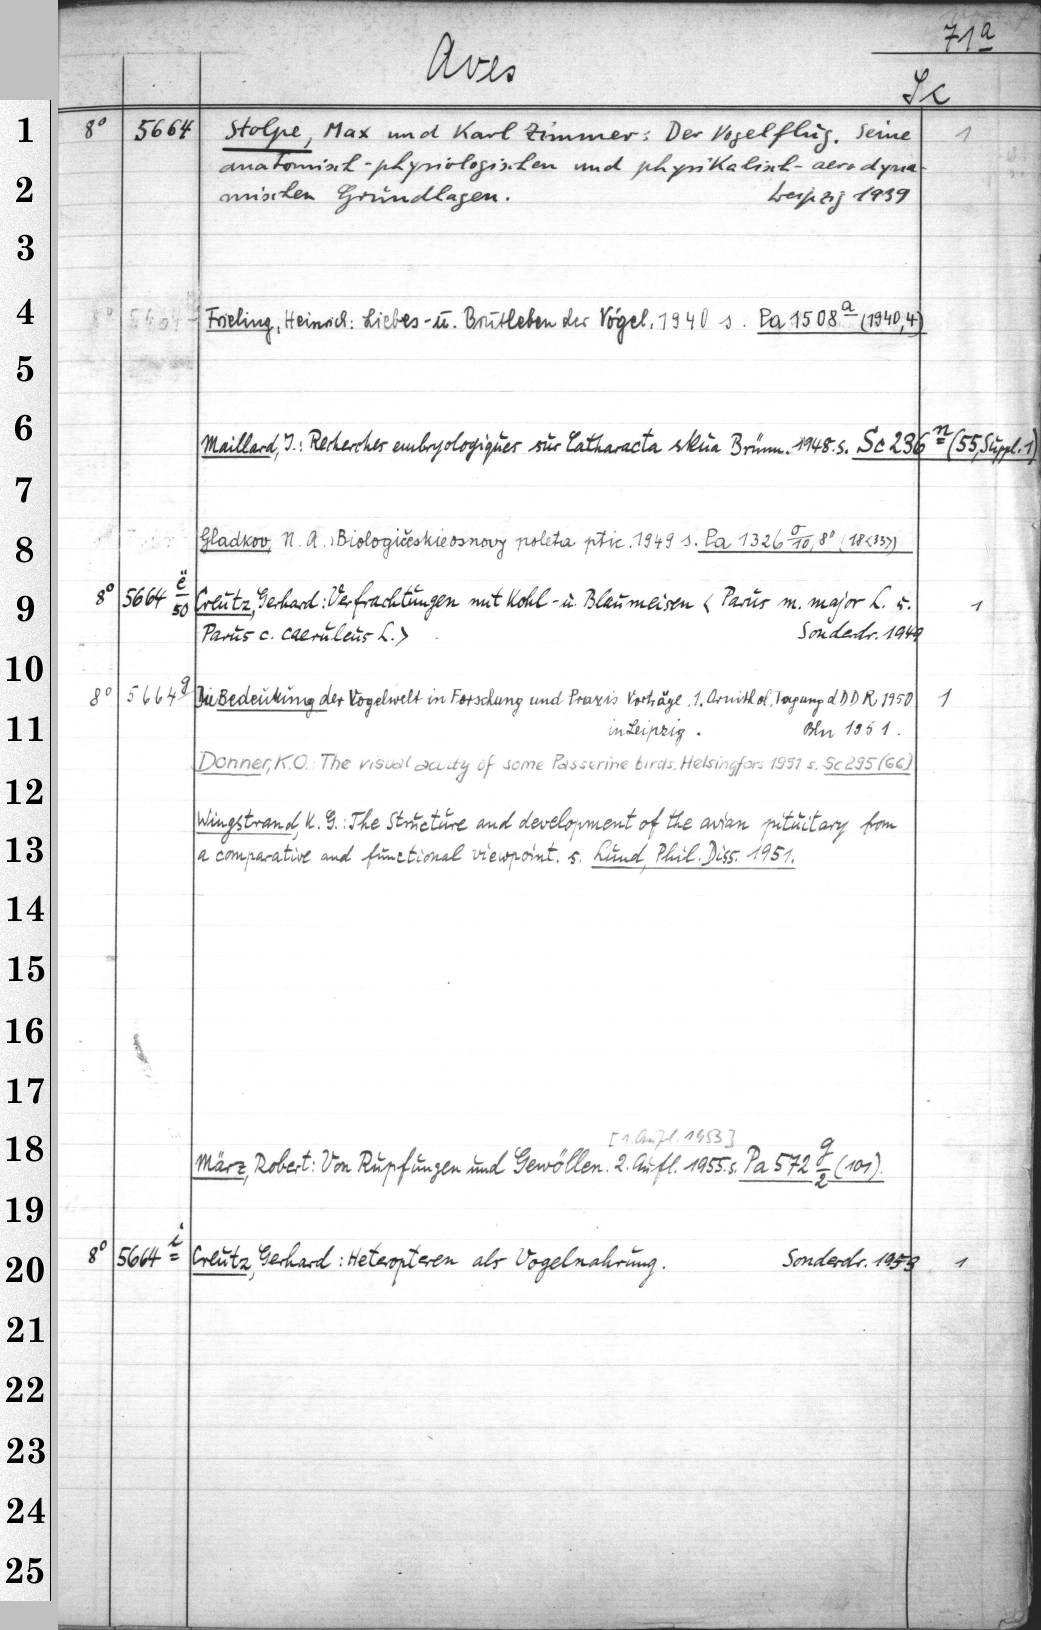 71a
Aves
Sc
1 8° 5664 Stolpe, Max und Karl Zimmer: Der Vogelflug. Seine 1
anatomisch-physiologischen und physikalisch-aerodyna-
2 mischen Grundlagen. Leipzig 1939
3
4 8° 5664 Frieling, Heinrich: Liebes- u. Brutleben der Vögel. 1940 s. Pa 1508a (1940,4)
5
6 Maillard, J.: Recherches embryologiques sur Catharacta skua Brünn. 1948. s. Sc 236n (55, Suppl. 1)
7
8 Gladkov, N. A.: Biologičeskie osnovy poleta ptic. 1949 s. Pa 1326 σ/10, 8° (18<33>)
9 8° 5664 ë/50 Creutz, Gerhard: Verfrachtungen mit Kohl- u. Blaumeisen < Parus m. major L. u. 1
Parus c. caeruleus L. > Sonderdr. 1949
10 8° 5664g Die Bedeutung der Vogelwelt in Forschung und Praxis Vorträge. 1. Ornithol. Tagung d DDR, 1950 1
11 in Leipzig. Bln 1951.
Donner, K.O.: The visual acuity of some Passerine birds. Helsingfors 1951 s. Sc 295 (66)
12
Wingstrand, K. G.: The Structure and development of the avian pituitary from
13 a comparative and functional viewpoint. s. Lund, Phil. Diss. 1951.
14
15
16
17
[1. Aufl. 1953]
18 März, Robert: Von Rupfungen und Gewöllen. 2. Aufl. 1955. s. Pa 572 g/2 (101).
19
20 8° 5664i Creutz, Gerhard: Heteropteren als Vogelnahrung. Sonderdr. 1953 1
21
22
23
24
25